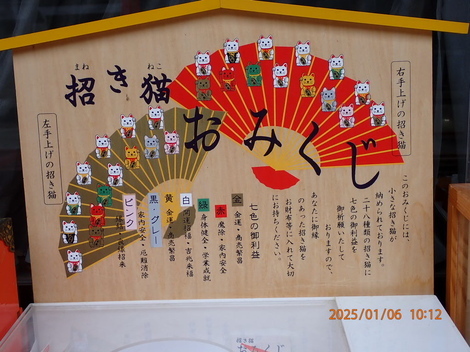 招き猫
まね
ねこ
おみくじ
右手上げの招き猫
左手上げの招き猫
このおみくじには、
小さな招き猫が
納められております。
二十八種類の招き猫に
七色の御利益を
御祈願いたして
おりますので、
あなたに御縁
のあった招き猫を
お財布等に入れて大切
にお持ちください。
七色の御利益
金 金運・商売繁昌
赤 魔除・家内安全
緑 身体健全・学業成就
白 開運招福・吉兆来福
黄 金運・商売繁昌
黒・グレー 家内安全・厄難消除
ピンク
招き猫
おみくじ
2025/01/06 10:12